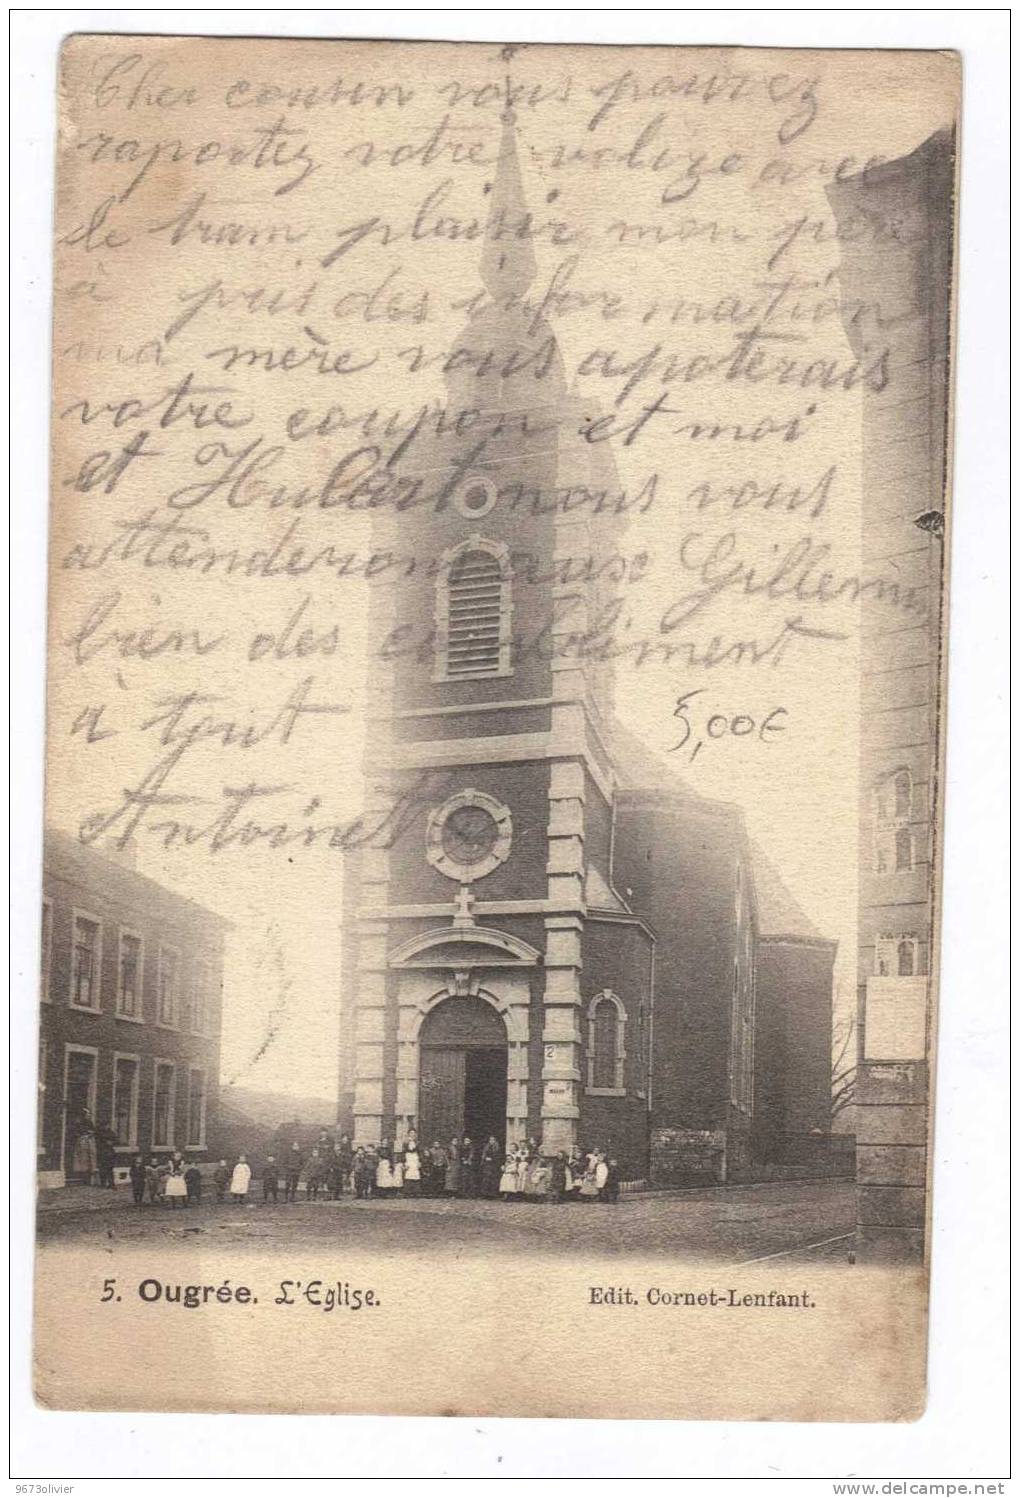 Cher cousin vous pouvez
raportez votre valize avec
le tram plaisir mon père
à pris des information
ma mère vous apoterais
votre coupon et moi
et Hubert nous vous
attenderon aux Gillemin
bien des
à tout
Antoinet
5,00€
2
5. Ougrée. L'Eglise.
Edit. Cornet-Lenfant.
9673olivier
www.delcampe.net